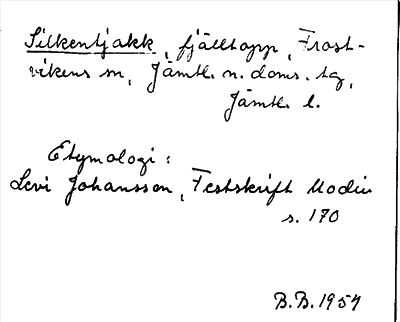 Silkentjakk, fjälltopp, Frost-
vikens sn, Jämtl. n. doms. tg,
Jämtl. l.
Etymologi:
Levi Johansson, Festskrift Modin
s. 170
B.B. 1957